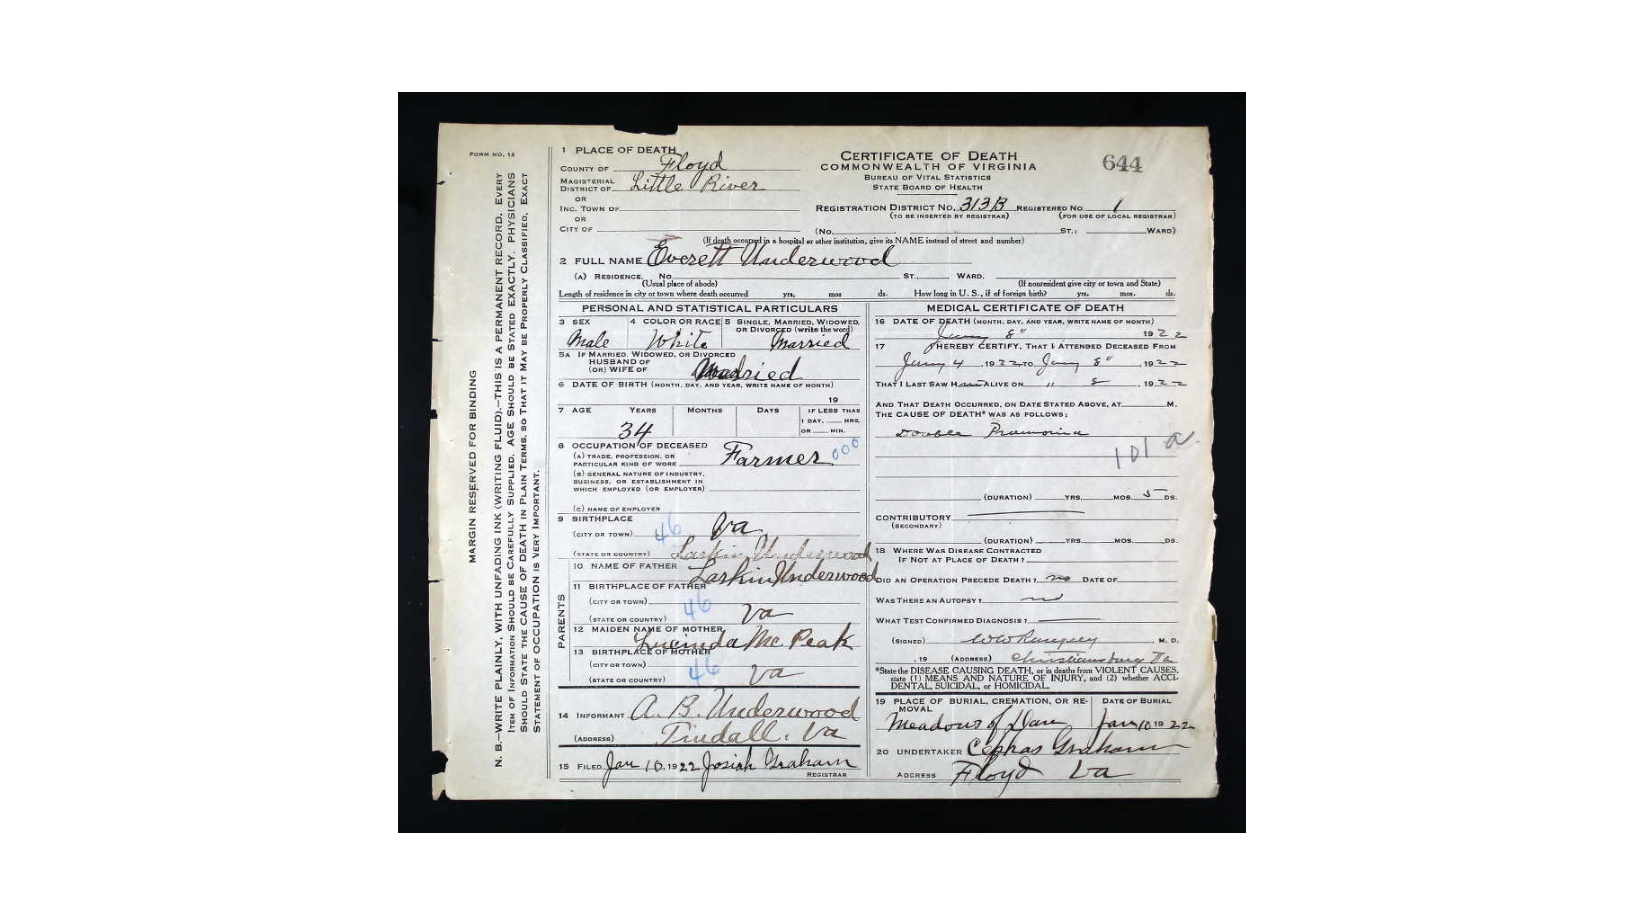 FORM NO. 12
MARGIN RESERVED FOR BINDING
N. B.—WRITE PLAINLY, WITH UNFADING INK (WRITING FLUID).—THIS IS A PERMANENT RECORD. EVERY
ITEM OF INFORMATION SHOULD BE CAREFULLY SUPPLIED. AGE SHOULD BE STATED EXACTLY. PHYSICIANS
SHOULD STATE THE CAUSE OF DEATH IN PLAIN TERMS, SO THAT IT MAY BE PROPERLY CLASSIFIED. EXACT
STATEMENT OF OCCUPATION IS VERY IMPORTANT.
1 PLACE OF DEATH
COUNTY OF Floyd
MAGISTERIAL DISTRICT OF Little River
OR
INC. TOWN OF
OR
CITY OF
CERTIFICATE OF DEATH
COMMONWEALTH OF VIRGINIA
BUREAU OF VITAL STATISTICS
STATE BOARD OF HEALTH
644
REGISTRATION DISTRICT NO. 313B REGISTERED NO. 1
(TO BE INSERTED BY REGISTRAR) (FOR USE OF LOCAL REGISTRAR)
(No. ST.; WARD)
(If death occurred in a hospital or other institution, give its NAME instead of street and number)
2 FULL NAME Everett Underwood
(A) RESIDENCE. No. ST., WARD.
(Usual place of abode) (If nonresident give city or town and State)
Length of residence in city or town where death occurred yrs. mos ds. How long in U. S., if of foreign birth? yrs. mos. ds.
PERSONAL AND STATISTICAL PARTICULARS
3 SEX 4 COLOR OR RACE 5 SINGLE, MARRIED, WIDOWED, OR DIVORCED (write the word)
Male White Married
5A IF MARRIED, WIDOWED, OR DIVORCED
HUSBAND OF
(OR) WIFE OF Married
6 DATE OF BIRTH (MONTH, DAY, AND YEAR, WRITE NAME OF MONTH)
19
7 AGE YEARS MONTHS DAYS IF LESS THAN
1 DAY, HRS.
OR MIN.
34
8 OCCUPATION OF DECEASED
(A) TRADE, PROFESSION, OR
PARTICULAR KIND OF WORK Farmer 000
(B) GENERAL NATURE OF INDUSTRY,
BUSINESS, OR ESTABLISHMENT IN
WHICH EMPLOYED (OR EMPLOYER)
(C) NAME OF EMPLOYER
9 BIRTHPLACE
(CITY OR TOWN) 46 Va
(STATE OR COUNTRY) Larkin Underwood
PARENTS
10 NAME OF FATHER Larkin Underwood
11 BIRTHPLACE OF FATHER
(CITY OR TOWN) 46
(STATE OR COUNTRY) Va
12 MAIDEN NAME OF MOTHER Lucinda Mc Peak
13 BIRTHPLACE OF MOTHER
(CITY OR TOWN) 46
(STATE OR COUNTRY) Va
14 INFORMANT A. B. Underwood
(ADDRESS) Tindall, Va
15 FILED Jan 10, 1922 Josiah Graham
REGISTRAR
MEDICAL CERTIFICATE OF DEATH
16 DATE OF DEATH (MONTH, DAY, AND YEAR, WRITE NAME OF MONTH)
8" 1922
17 I HEREBY CERTIFY, THAT I ATTENDED DECEASED FROM
4, 1922 TO 8", 1922
THAT I LAST SAW H ALIVE ON " 8, 1922
AND THAT DEATH OCCURRED, ON DATE STATED ABOVE, AT M.
THE CAUSE OF DEATH* WAS AS FOLLOWS:
Double Pneumonia
101 a
(DURATION) YRS. MOS. 5 DS.
CONTRIBUTORY
(SECONDARY)
(DURATION) YRS. MOS. DS.
18 WHERE WAS DISEASE CONTRACTED
IF NOT AT PLACE OF DEATH?
DID AN OPERATION PRECEDE DEATH? no DATE OF
WAS THERE AN AUTOPSY? no
WHAT TEST CONFIRMED DIAGNOSIS?
(SIGNED) M. D.
, 19 (ADDRESS) Christiansburg Va
*State the DISEASE CAUSING DEATH, or in deaths from VIOLENT CAUSES,
state (1) MEANS AND NATURE OF INJURY, and (2) whether ACCI-
DENTAL, SUICIDAL, or HOMICIDAL.
19 PLACE OF BURIAL, CREMATION, OR RE-MOVAL DATE OF BURIAL
Meadows of Dan Jan 10 1922
20 UNDERTAKER Cephas Graham
ADDRESS Floyd Va